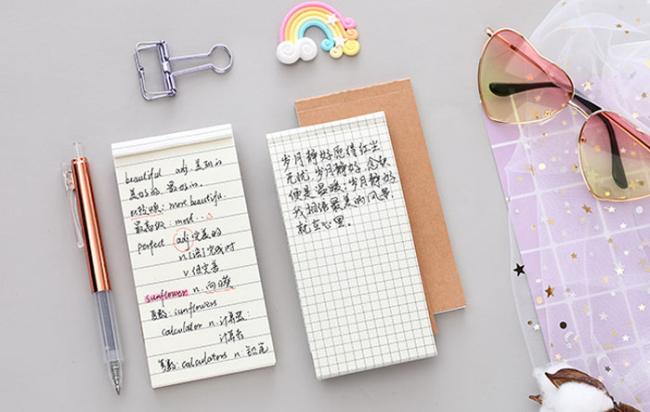 beautiful adj. 美丽的
美好的. 最好的.
比较级: more beautiful.
最高级: most...
perfect adj 完美的
n.[语]完成时
v. 使完善
sunflower n. 向日葵
复数: sunflowers
calculator n. 计算器:
计算者
复数: calculators n.
岁月静好愿借红尘
无忧, 岁月静好, 念
便是温暖; 岁月静好
我相信最美的风景,
就在心里.